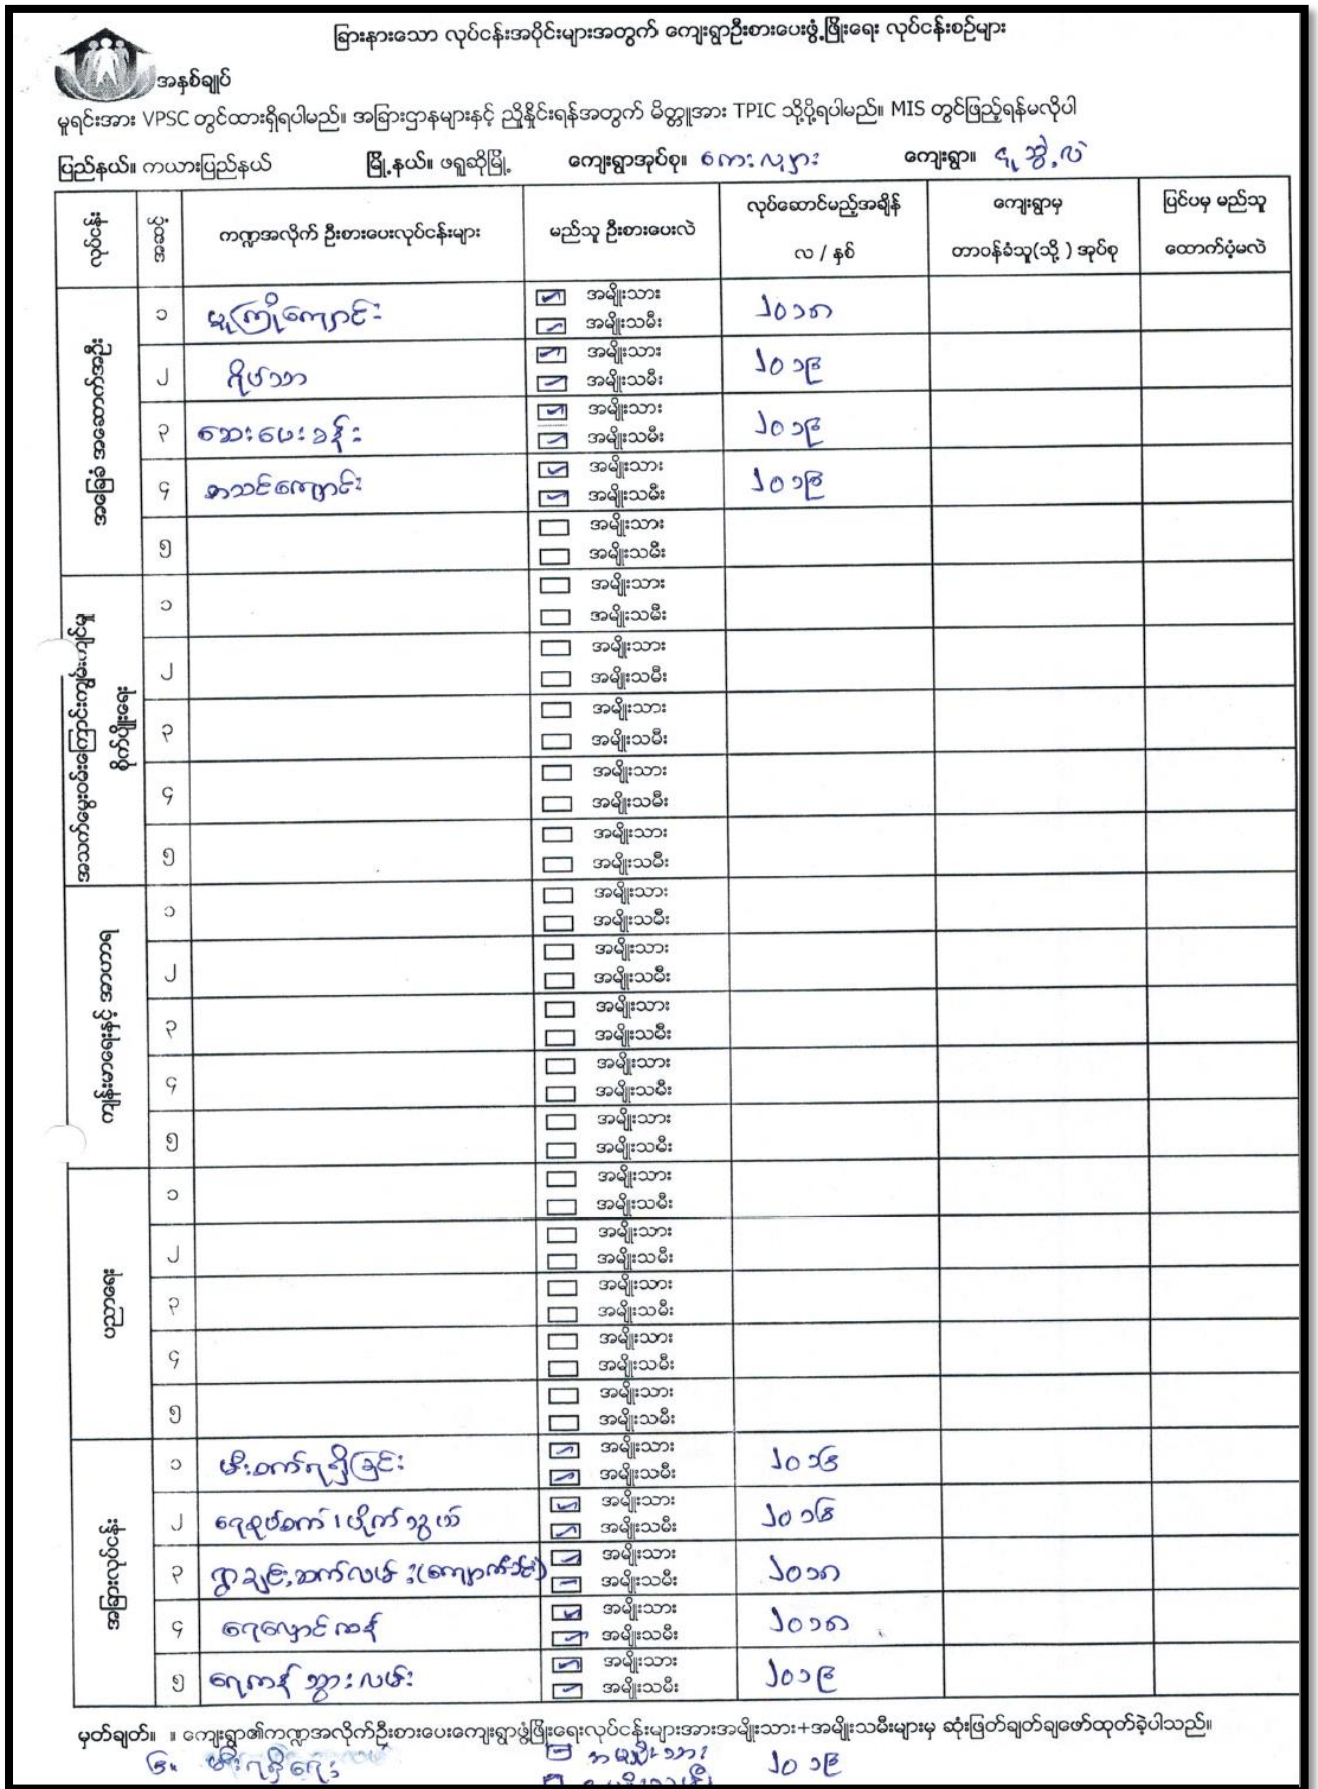 ခြားနားသော လုပ်ငန်းအပိုင်းများအတွက် ကျေးရွာဦးစားပေးဖွံ့ဖြိုးရေး လုပ်ငန်းစဉ်များ
အနှစ်ချုပ်
မူရင်းအား VPSC တွင်ထားရှိရပါမည်။ အခြားဌာနများနှင့် ညှိနှိုင်းရန်အတွက် မိတ္တူအား TPIC သို့ပို့ရပါမည်။ MIS တွင်ဖြည့်ရန်မလိုပါ
ပြည်နယ်။ ကယားပြည်နယ် မြို့နယ်။ ဖရူဆိုမြို့ ကျေးရွာအုပ်စု။ ကေးလျား ကျေးရွာ။
လုပ်ငန်း အစဉ် ကဏ္ဍအလိုက် ဦးစားပေးလုပ်ငန်းများ မည်သူ ဦးစားပေးလဲ လုပ်ဆောင်မည့်အချိန် လ / နှစ် ကျေးရွာမှ တာဝန်ခံသူ(သို့) အုပ်စု ပြင်ပမှ မည်သူ ထောက်ပံ့မလဲ
အခြေခံ အဆောက်အဦး
၁ မူကြိုကျောင်း အမျိုးသား ၂၀၁၈
အမျိုးသမီး
၂ အမျိုးသား ၂၀၁၉
အမျိုးသမီး
၃ ဆေးပေးခန်း အမျိုးသား ၂၀၁၉
အမျိုးသမီး
၄ စာသင်ကျောင်း အမျိုးသား ၂၀၁၉
အမျိုးသမီး
၅ အမျိုးသား
အမျိုးသမီး
၁ အမျိုးသား
အမျိုးသမီး
၂ အမျိုးသား
အမျိုးသမီး
၃ အမျိုးသား
အမျိုးသမီး
၄ အမျိုးသား
အမျိုးသမီး
၅ အမျိုးသား
အမျိုးသမီး
ကျန်းမာရေးနှင့် အာဟာရ
၁ အမျိုးသား
အမျိုးသမီး
၂ အမျိုးသား
အမျိုးသမီး
၃ အမျိုးသား
အမျိုးသမီး
၄ အမျိုးသား
အမျိုးသမီး
၅ အမျိုးသား
အမျိုးသမီး
ပညာရေး
၁ အမျိုးသား
အမျိုးသမီး
၂ အမျိုးသား
အမျိုးသမီး
၃ အမျိုးသား
အမျိုးသမီး
၄ အမျိုးသား
အမျိုးသမီး
၅ အမျိုးသား
အမျိုးသမီး
အခြားလုပ်ငန်း
၁ မီးစက်ရရှိခြင်း အမျိုးသား ၂၀၁၆
အမျိုးသမီး
၂ ရေစုပ်စက်၊ ပိုက်သွယ် အမျိုးသား ၂၀၁၆
အမျိုးသမီး
၃ ရွာချင်းဆက်လမ်း(ကျောက်ခင်း) အမျိုးသား ၂၀၁၈
အမျိုးသမီး
၄ ရေလှောင်ကန် အမျိုးသား ၂၀၁၈
အမျိုးသမီး
၅ ရေကန်သွားလမ်း အမျိုးသား ၂၀၁၉
အမျိုးသမီး
မှတ်ချက်။ ။ ကျေးရွာ၏ကဏ္ဍအလိုက်ဦးစားပေးကျေးရွာဖွံ့ဖြိုးရေးလုပ်ငန်းများအားအမျိုးသား+အမျိုးသမီးများမှ ဆုံးဖြတ်ချက်ချဖော်ထုတ်ခဲ့ပါသည်။
၆။ မီးရရှိရေး အမျိုးသား ၂၀၁၉